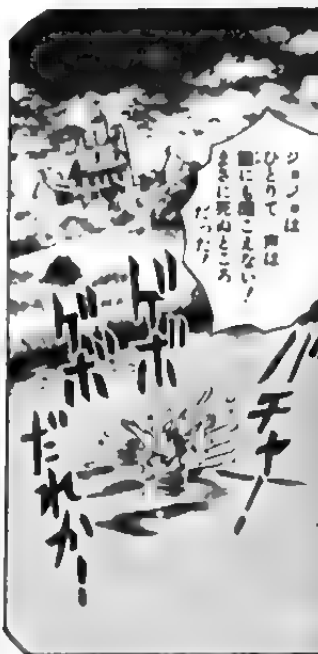 ジョジョは
ひとりで 声は
誰にも聞こえない!
まさに死ぬところ
だった!
チャ
ガボ
ガボ
だれかー!